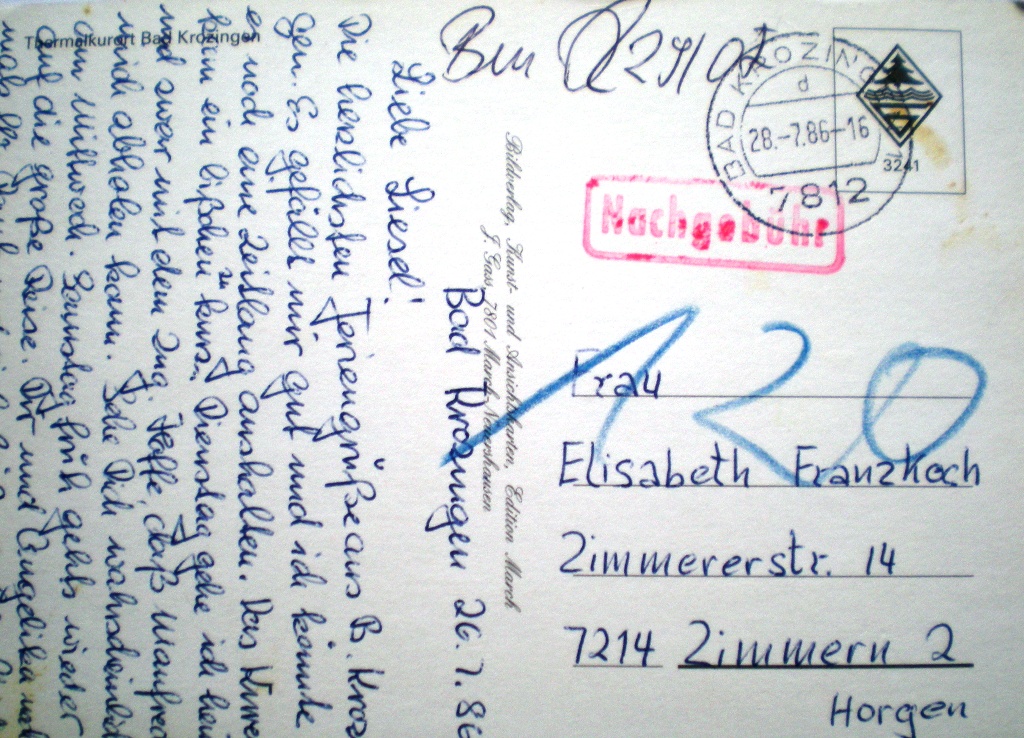 Thermalkurort Bad Krozingen
Bad Krozingen 26.7.86
Liebe Liesel!
Die herzlichsten Feriengrüße aus B. Kroz
gen. Es gefällt mir gut und ich könnte
es noch eine Zeitlang aushalten. Das
ein bißchen zu kurz. Dienstag gehe ich
und zwar mit dem Zug. Hoffe, daß Manfred
mich abholen kann. Sehe Dich wahrscheinlich
am Mittwoch. Samstag früh gehts wieder
auf die große Reise. Dir und Angelika
Bildverlag, Kunst- und Ansichtskarten, Edition March
J. Gass, 7801 March-Neuershausen
BAD KROZINGEN
d
28.-7.86-16
7812
3241
Nachgebühr
120
Frau
Elisabeth Franzkoch
Zimmererstr. 14
7214 Zimmern 2
Horgen